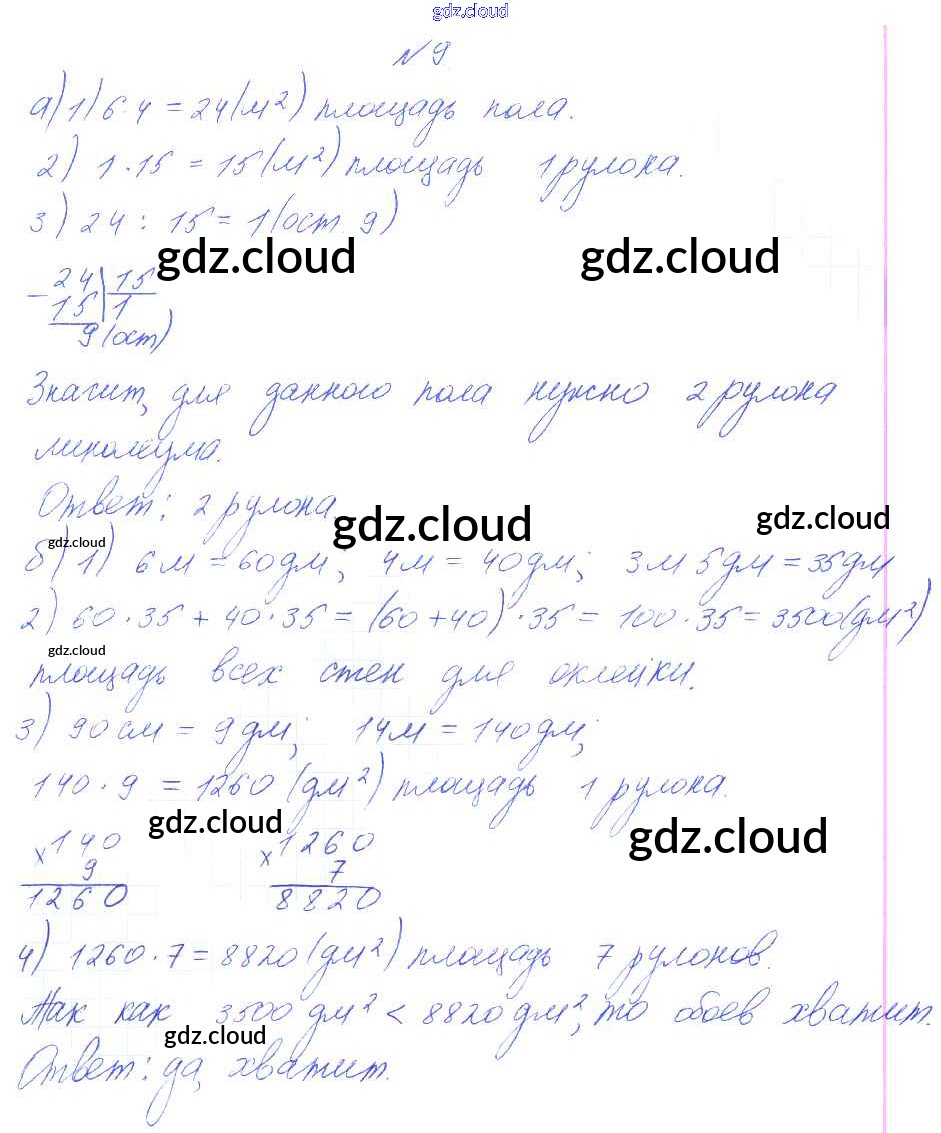 gdz.cloud
№9
а) 1) 6·4 = 24 (м²) площадь пола.
2) 1·15 = 15 (м²) площадь 1 рулока.
3) 24 : 15 = 1 (ост. 9)
gdz.cloud gdz.cloud
- 24 | 15
15 | 1
9 (ост)
Значит, для данного пола нужно 2 рулона
линолеума.
Ответ: 2 рулона
gdz.cloud gdz.cloud
gdz.cloud
б) 1) 6м = 60дм; 4м = 40дм; 3м 5дм = 35дм
2) 60·35 + 40·35 = (60+40)·35 = 100·35 = 3500 (дм²)
gdz.cloud
площадь всех стен для оклейки.
3) 90см = 9дм; 14м = 140дм;
140·9 = 1260 (дм²) площадь 1 рулона.
gdz.cloud gdz.cloud
x 140 x 1260
9 7
1260 8820
4) 1260·7 = 8820 (дм²) площадь 7 рулонов.
Так как 3500 дм² < 8820 дм², то обоев хватит.
gdz.cloud
Ответ: да, хватит.